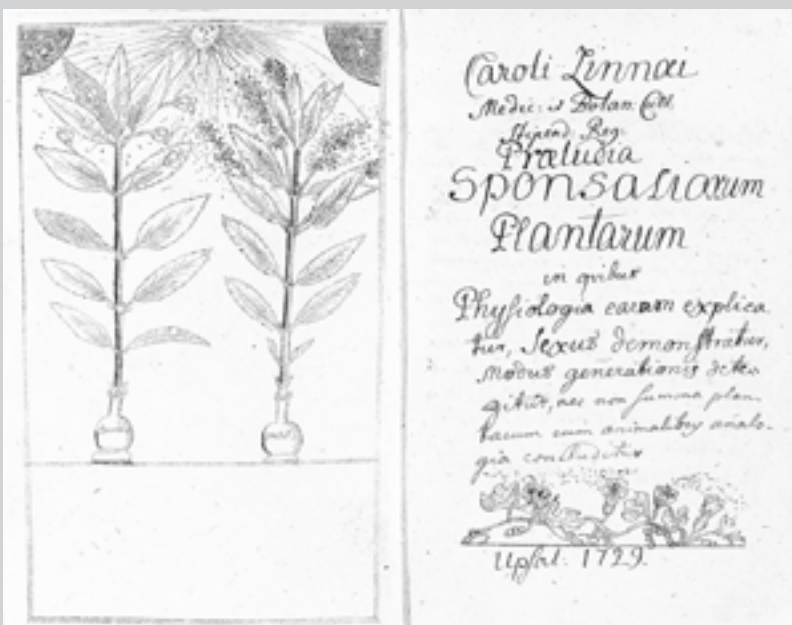 Caroli Linnæi
Medic: et Botan. Cult.
Stipend. Reg.
Præludia
Sponsaliarum
Plantarum
in quibus
Physiologia earum explica
tur, Sexus demonstratur,
Modus generationis dete-
gitur, nec non summa plan-
tarum cum animalibus analo-
gia concluditur
Upsal. 1729.